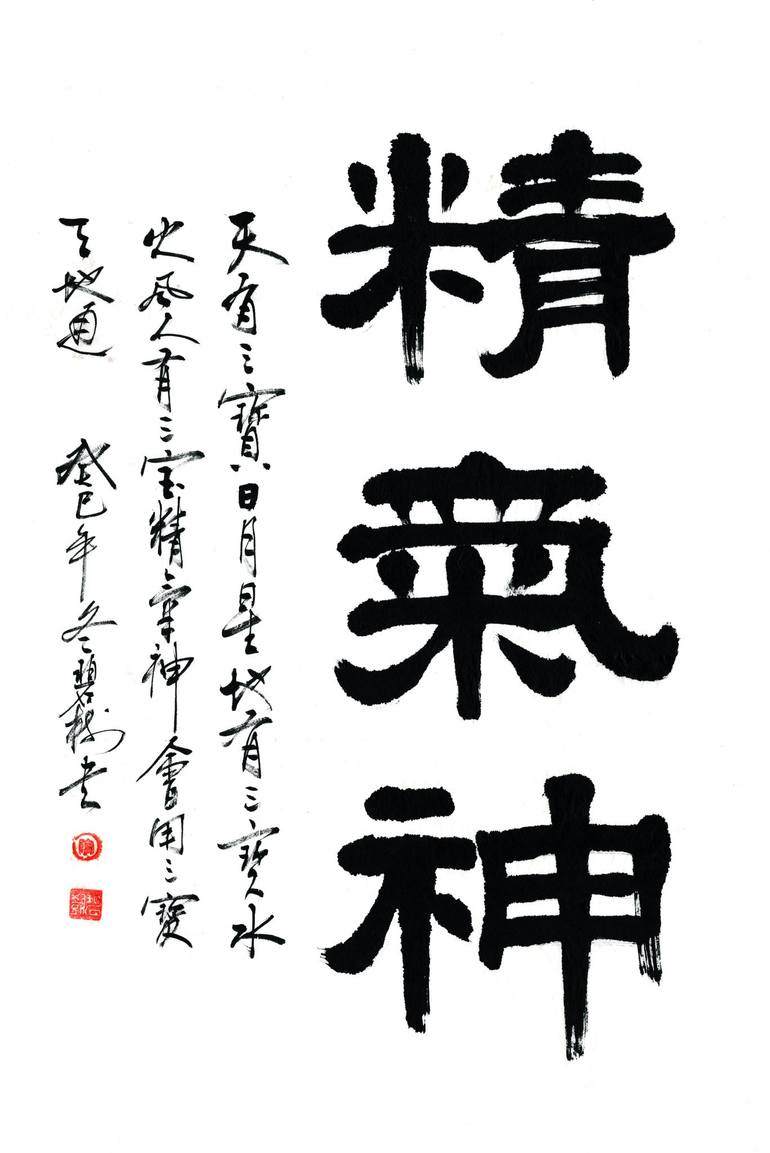 精氣神
天有三寶日月星地有三寶水
火风人有三宝精氣神會用三寶
天地通 癸巳年冬碧树书